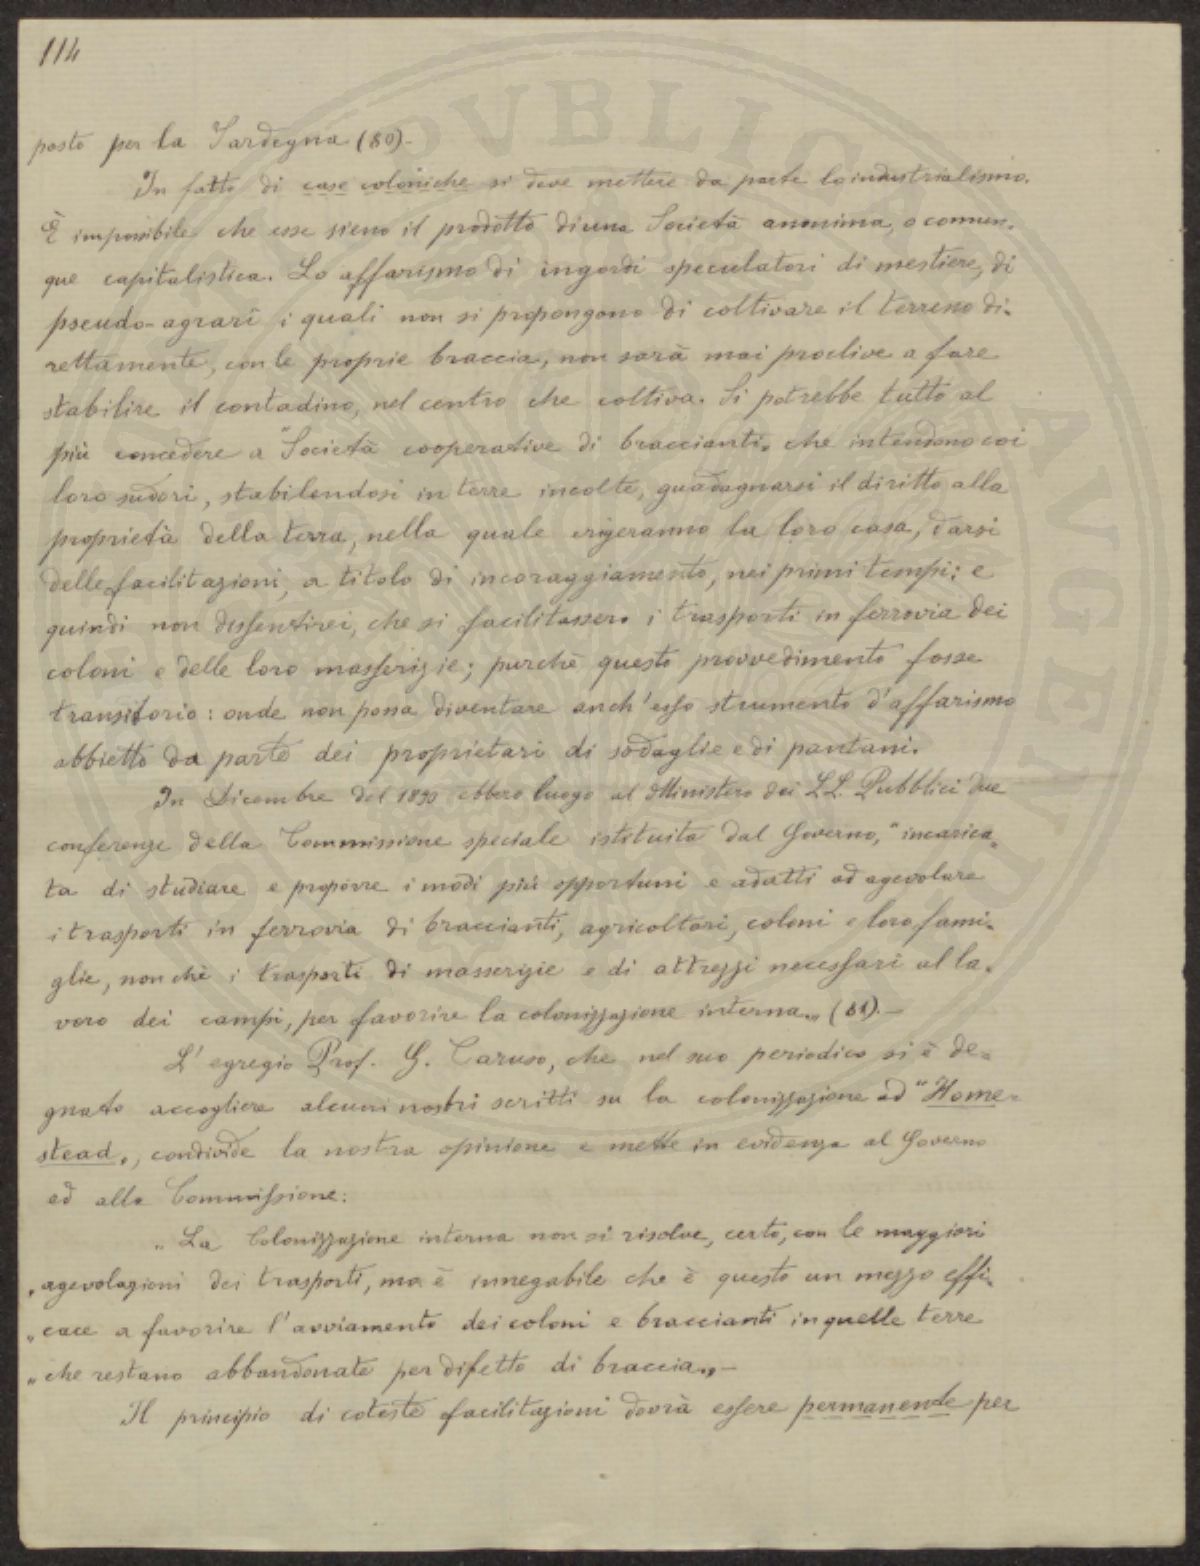 114
posto per la Sardegna (80).-
In fatto di case coloniche si deve mettere da parte lo industrialismo.
È impossibile che esse sieno il prodotto di una Società anonima, o comun-
que capitalistica. Lo affarismo di ingordi speculatori di mestiere, di
pseudo-agrari i quali non si propongono di coltivare il terreno di-
rettamente, con le proprie braccia, non sarà mai proclive a fare
stabilire il contadino, nel centro che coltiva. Si potrebbe tutto al
più concedere a "Società cooperative di braccianti„ che intendono coi
loro sudori, stabilendosi in terre incolte, guadagnarsi il diritto alla
proprietà della terra, nella quale erigeranno la loro casa, darsi
delle facilitazioni, a titolo di incoraggiamento, nei primi tempi; e
quindi non dissentirei, che si facilitassero i trasporti in ferrovia dei
coloni e delle loro masserizie; purchè questo provvedimento fosse
transitorio: onde non possa diventare anch'esso strumento d'affarismo
abbietto da parte dei proprietari di sodaglie e di pantani.
In Dicembre del 1890 ebbero luogo al Ministero dei LL. Pubblici due
conferenze della Commissione speciale istituita dal Governo, "incarica-
ta di studiare e proporre i modi più opportuni e adatti ad agevolare
i trasporti in ferrovia di braccianti, agricoltori, coloni e loro fami-
glie, non chè i trasporti di masserizie e di attrezzi necessari al la-
voro dei campi, per favorire la colonizzazione interna„ (81).-
L'egregio Prof. G. Caruso, che nel suo periodico si è de-
gnato accogliere alcuni nostri scritti su la colonizzazione ed "Home-
stead„, condivide la nostra opinione e mette in evidenza al Governo
ed alla Commissione:
"La Colonizzazione interna non si risolve, certo, con le maggiori
"agevolazioni dei trasporti, ma è innegabile che è questo un mezzo effi-
"cace a favorire l'avviamento dei coloni e braccianti in quelle terre
"che restano abbandonate per difetto di braccia„-
Il principio di coteste facilitazioni dovrà essere permanente per